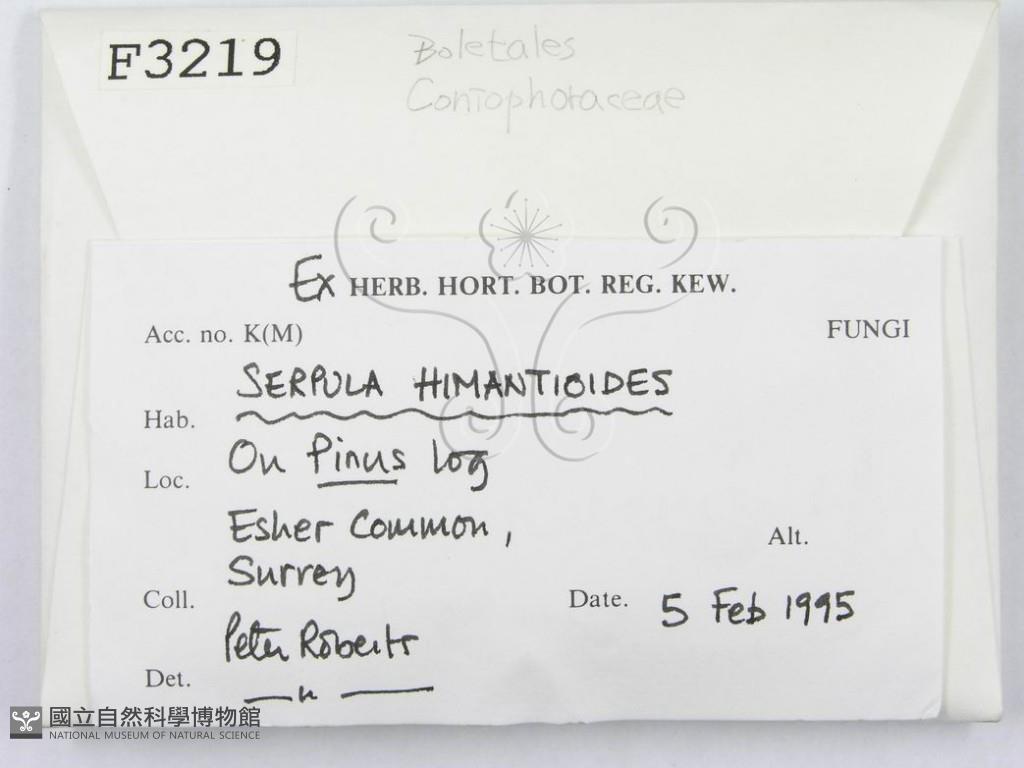 F3219
Boletales
Coniophoraceae
Ex HERB. HORT. BOT. REG. KEW.
Acc. no. K(M)
FUNGI
SERPULA HIMANTIOIDES
Hab.
On Pinus log
Loc.
Esher Common,
Alt.
Surrey
Coll.
Date. 5 Feb 1995
Peter Roberts
Det.
— " —
國立自然科學博物館
NATIONAL MUSEUM OF NATURAL SCIENCE